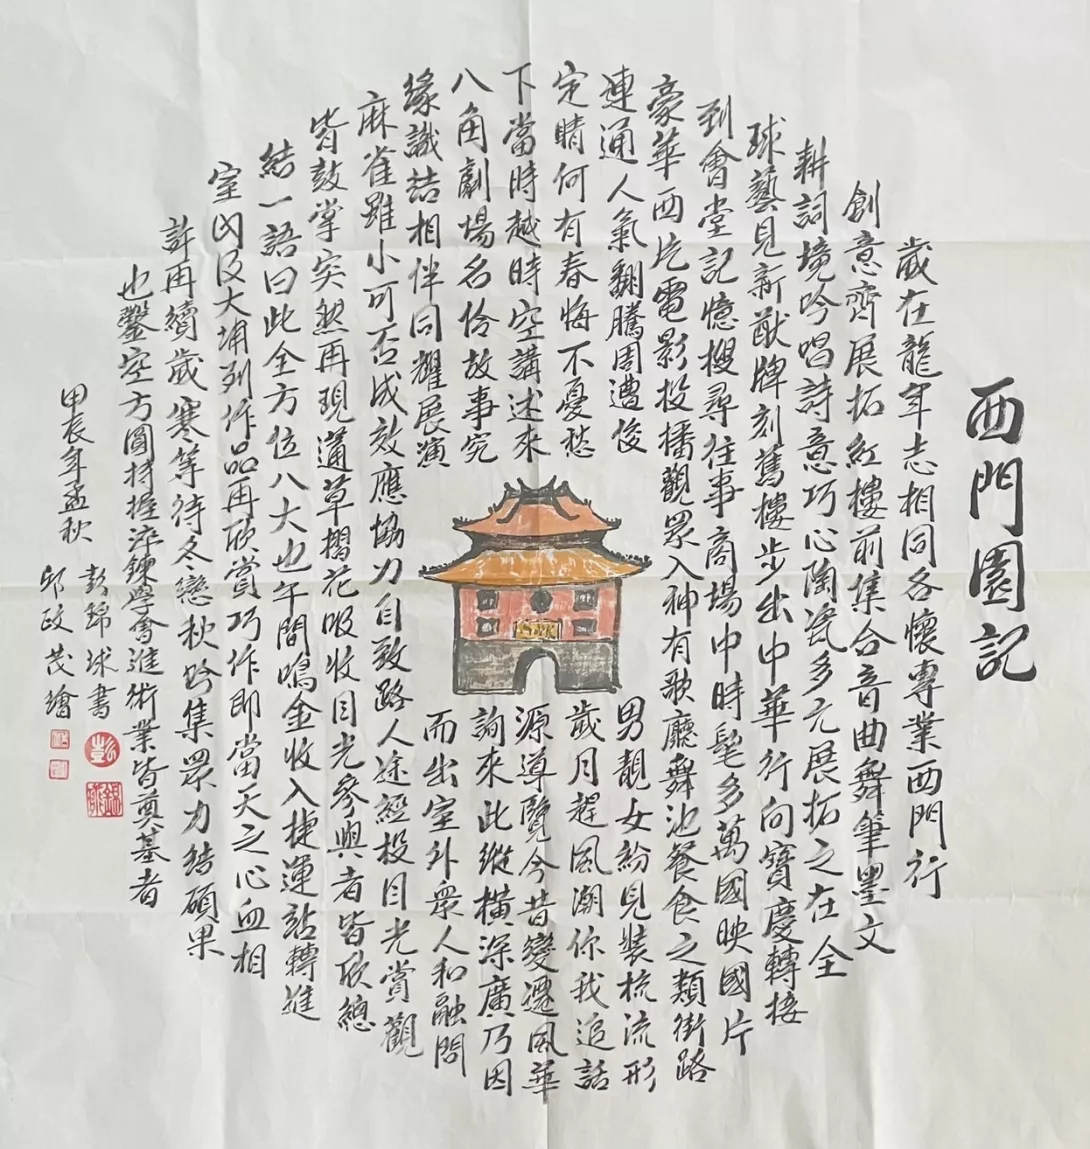 西門園記
歲在龍年志相同各懷專業西門行
創意齊展拓紅樓前集合音曲舞筆墨文
耕詞境吟唱詩意巧心陶瓷多元展拓之在全
球藝見新猷牌刻舊樓步出中華行向寶慶轉接
到會堂記憶搜尋往事商場中時髦多萬國映國片
豪華西片電影投播觀眾入神有歌廳舞池餐食之類街路
連通人氣翻騰周遭俊
男靚女紛見裝梳流形
定睛何有春悔不憂愁
歲月趕風潮你我追話
下當時越時空講述來
源導覽今昔變遷風華
八角劇場名伶故事究
詢來此縱橫深廣乃因
緣識喆相伴同耀展演
而出室外衆人和融問
麻雀雖小可否成效應協力自致路人途經投目光賞觀
皆鼓掌突然再現蓪草摺花吸收目光參與者皆欣總
結一語曰此全方位八大也午間鳴金收入捷運站轉進
室內及大埔列作品再欣賞巧作即當天之心血相
許再續歲寒等待冬戀秋吟集眾力結碩果
也鑿空方圓持握淬鍊學會進術業皆奠基者
甲辰年孟秋
彭錦球書
邱政茂繪